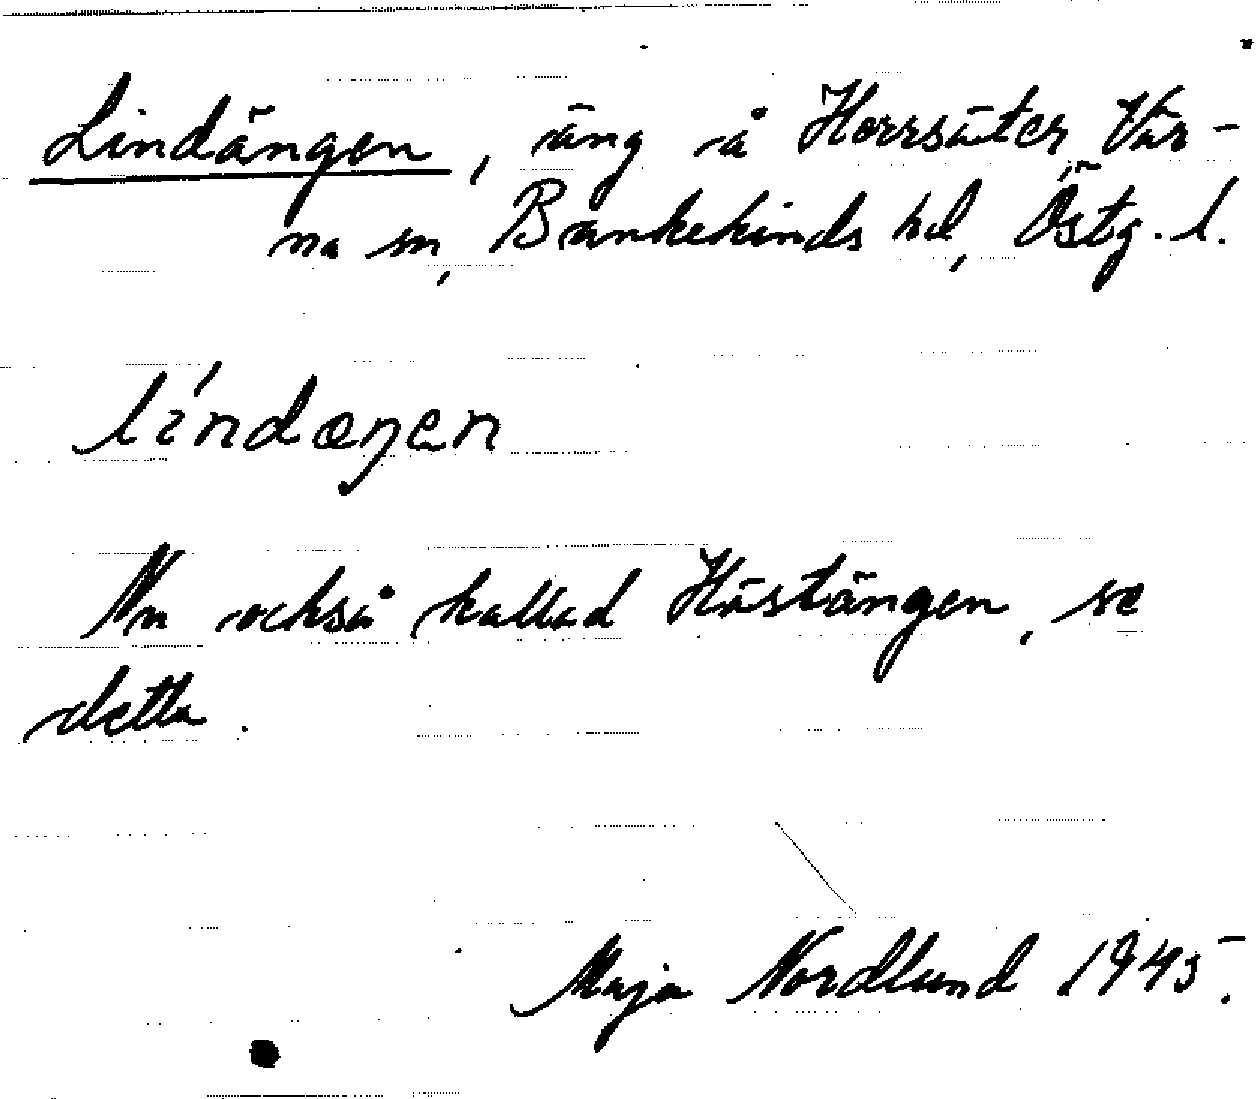 Lindängen, äng å Herrsäter, Vår-
na sn, Bankekinds hd, Östg. l.
líndæŋen
Nu också kallad Hästängen, se
detta.
Maja Nordlund 1945.